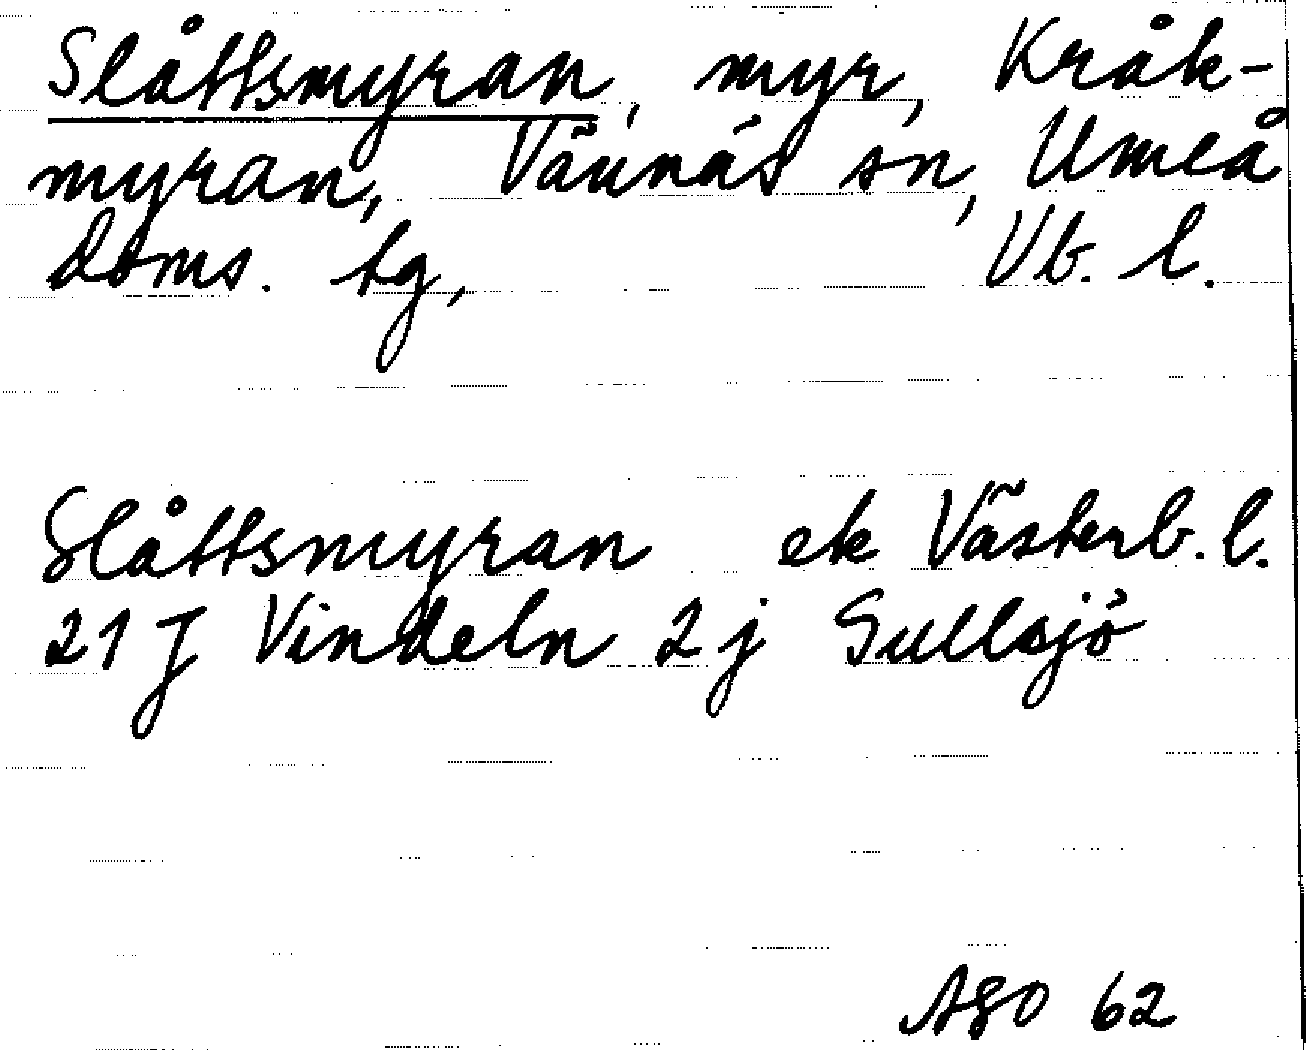 Slåttsmyran, myr, Kråk-
myran, Vännäs sn, Umeå
doms. tg, Vb. l.
Slåttsmyran ek Västerb. l.
21 J Vindeln 2 j Gullsjö
AGO 62